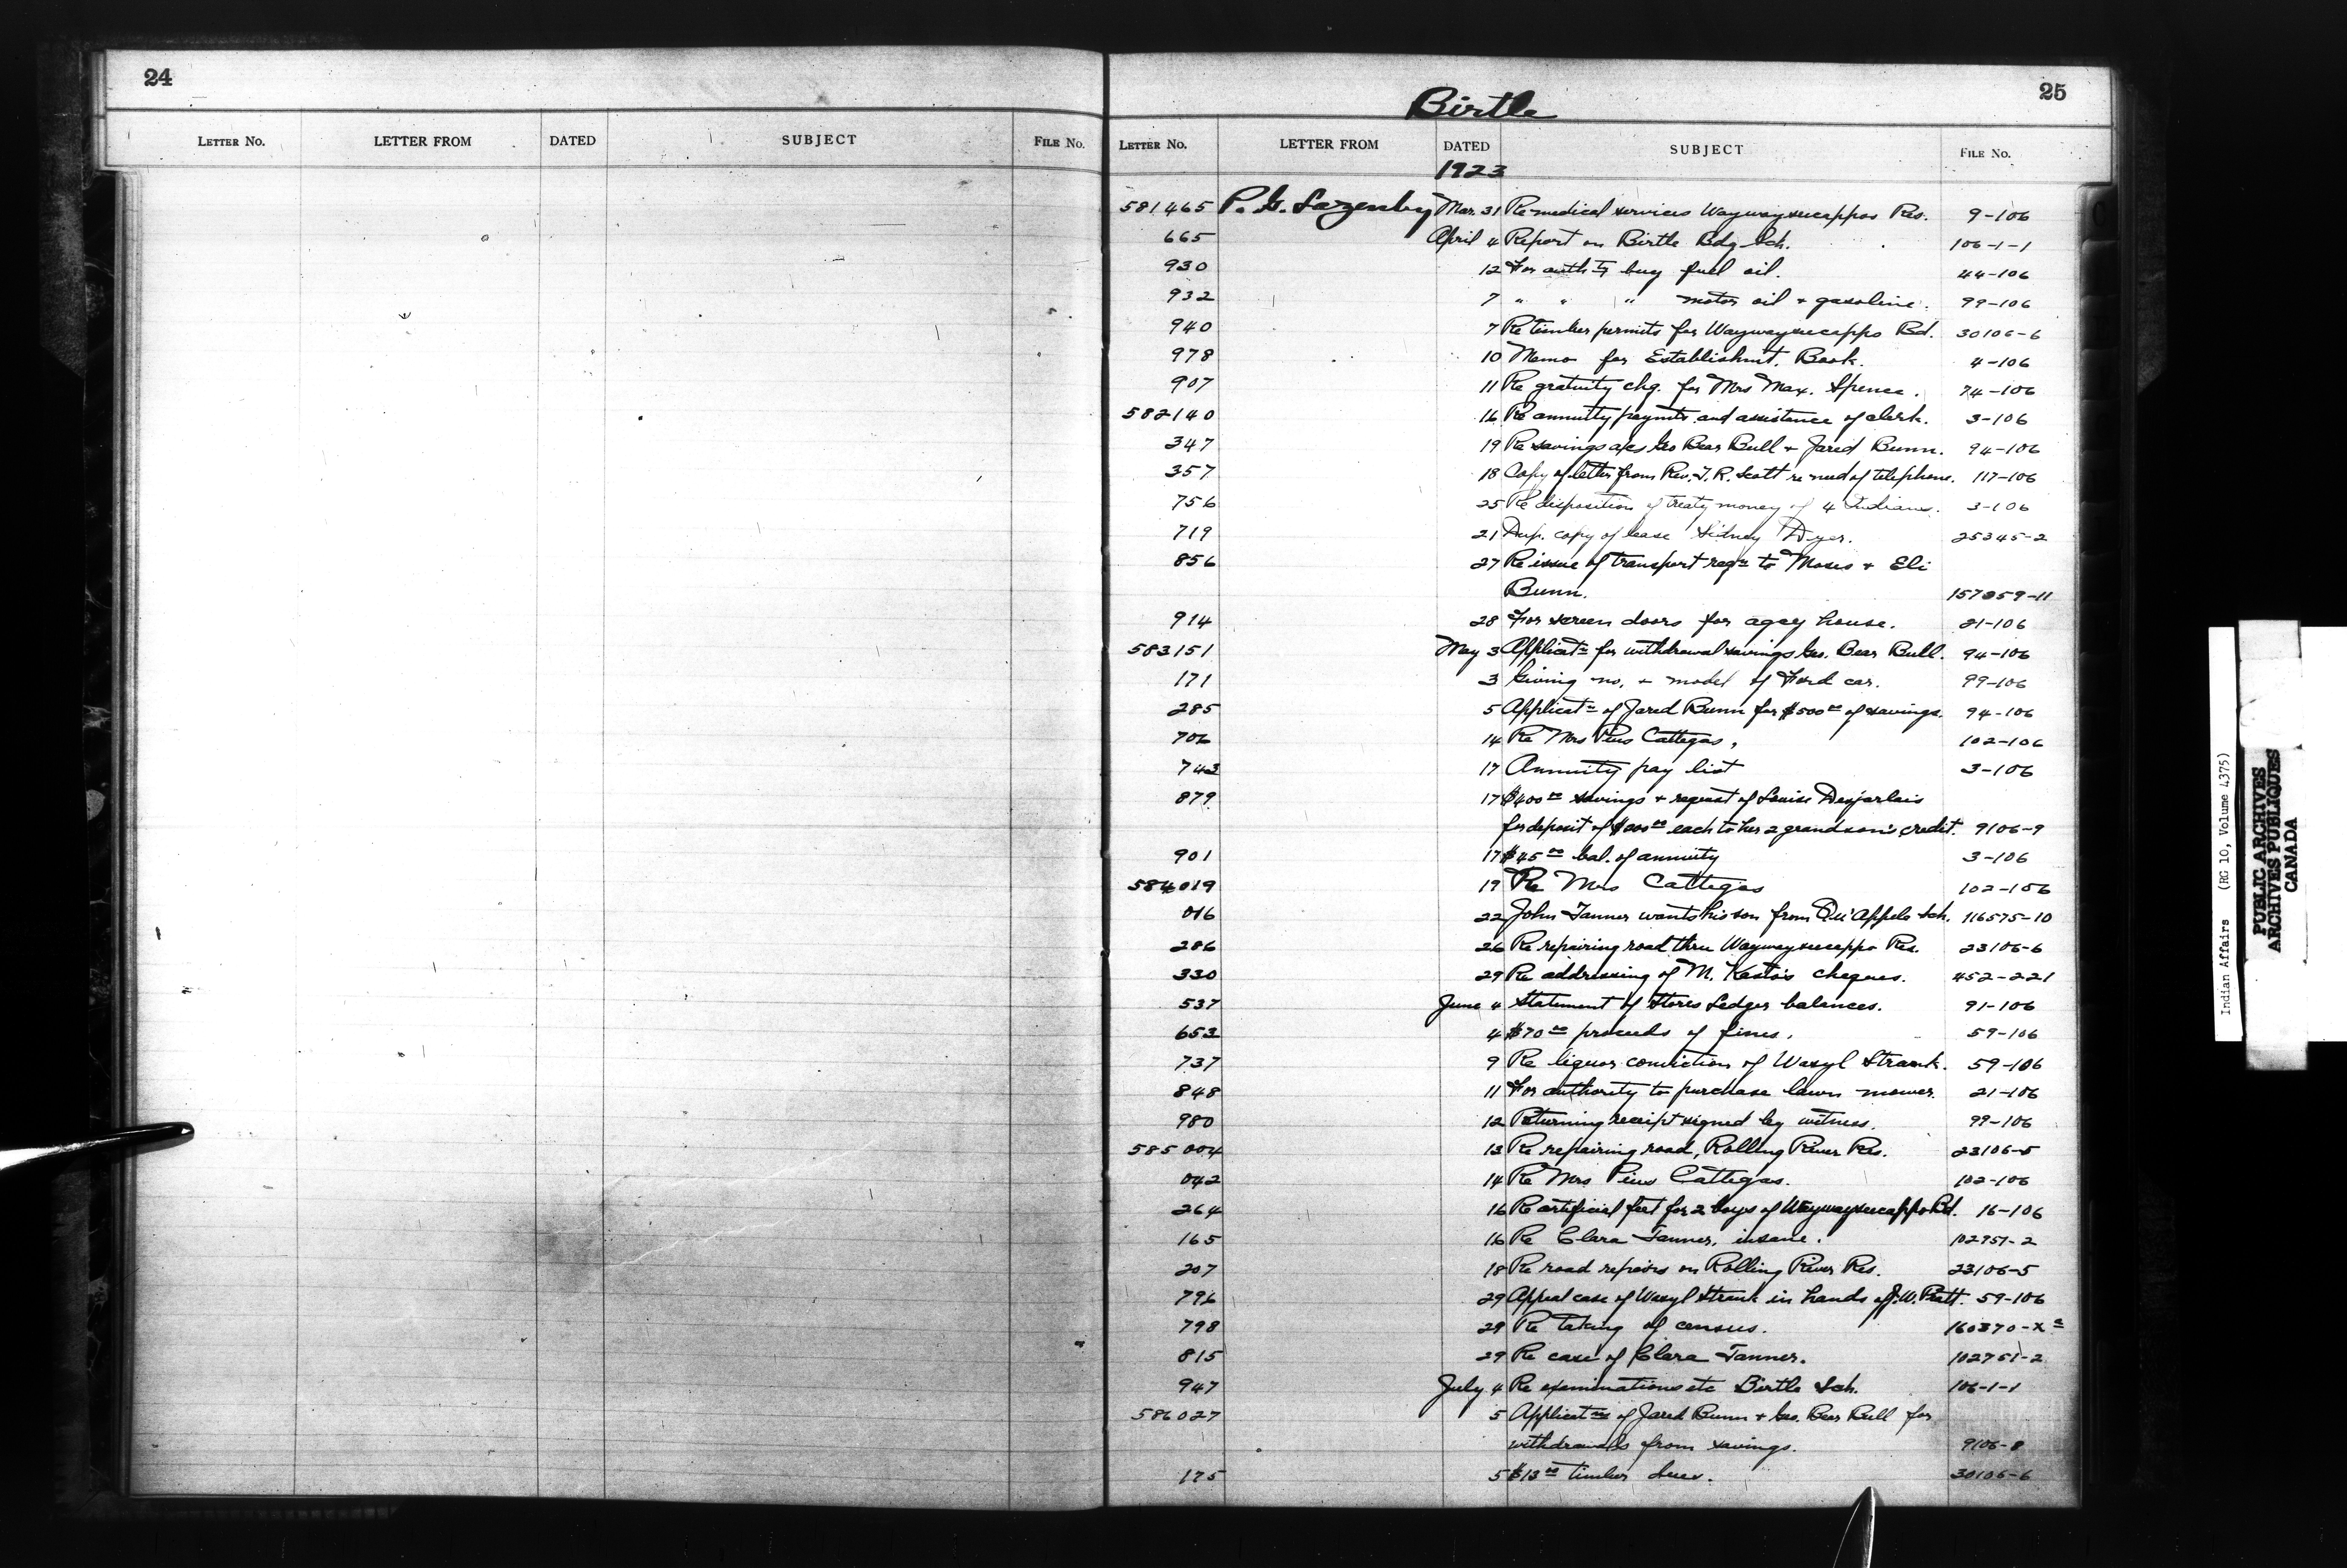 24
LETTER No. LETTER FROM DATED SUBJECT FILE No.
25
Birtle
LETTER No. LETTER FROM DATED SUBJECT FILE No.
1923
581465 P. G. Lazenby Mar. 31 Re medical services Waywayseecappos Res. 9-106
665 April 4 Report on Birtle Bdg Sch. 106-1-1
930 12 For auth to buy fuel oil. 44-106
932 7 " " " motor oil + gasoline. 99-106
940 7 Re timber permits for Waywayseecappo Bd. 30106-6
978 10 Memo for Establishmt. Book. 4-106
907 11 Re gratuity chq. for Mrs Max. Spence. 74-106
582140 16 Re annuity paymts. and assistance of clerk. 3-106
347 19 Re savings a/cs Geo Bear Bull + Jared Bunn. 94-106
357 18 Copy of letter from Rev. J. R. Scott re need of telephone. 117-106
756 25 Re disposition of treaty money of 4 Indians. 3-106
719 21 Dup. copy of lease Sidney Dyer. 25345-2
856 27 Re issue of transport reqn to Moses + Eli
Bunn. 157059-11
914 28 For screen doors for agcy house. 21-106
583151 May 3 Applicatn for withdrawal savings Geo. Bear Bull. 94-106
171 3 Giving no. + model of Ford car. 99-106
285 5 Applicatn of Jared Bunn for $500 00 of savings. 94-106
706 14 Re Mrs Pius Cattegas. 102-106
743 17 Annuity pay list 3-106
879 17 $400 00 savings + request of Louise Desjarlais
for deposit of $200 00 each to her 2 grandson's credit. 9106-9
901 17 $45 00 bal. of annuity 3-106
584019 19 Re Mrs Cattegas 102-106
016 22 John Tanner wants his son from Qu'Appele Sch. 116575-10
286 26 Re repairing road thru Waywayseecappo Res. 23106-6
330 29 Re addressing of M. Kasto's cheques. 452-221
537 June 4 Statement of Stores Ledger balances. 91-106
653 4 $70 00 proceeds of fines. 59-106
737 9 Re liquor conviction of Wasyl Strank. 59-106
848 11 For authority to purchase lawn mower. 21-106
980 12 Returning receipt signed by witness. 99-106
585004 13 Re repairing road, Rolling River Res. 23106-5
042 14 Re Mrs Pius Cattegas. 102-106
264 16 Re artificial feet for 2 boys of Waywayseecappo Bd. 16-106
165 16 Re Clara Tanner, insane. 102751-2
207 18 Re road repairs on Rolling River Res. 23106-5
796 29 Appeal case of Wasyl Strank in hands of J. W. Pratt. 59-106
798 29 Re taking of census. 160370-X
815 29 Re case of Clara Tanner. 102751-2
947 July 4 Re examinations etc Birtle Sch. 106-1-1
586027 5 Applicatns of Jared Bunn + Geo. Bear Bull for
withdrawals from savings. 9106-8
175 5 $13 00 timber dues. 30106-6
Indian Affairs (RG 10, Volume 4375)
PUBLIC ARCHIVES
ARCHIVES PUBLIQUES
CANADA